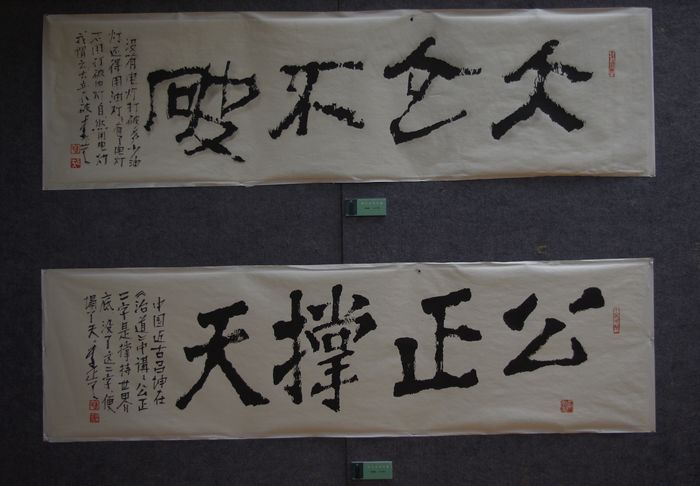 大立不破
没有电灯打破多少油
灯还得用油灯有了电灯
不用打破油灯自然用电灯
我谓之大立不破
公正撑天
中国近古吕坤在
《治道》中讲：公正
二字是撑持世界
底 没了这二字，便
塌了天